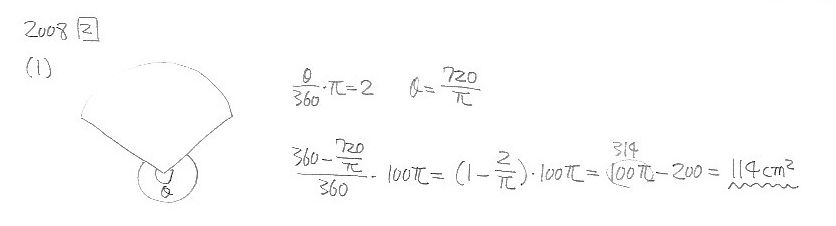 2008 [2]
(1)
θ/360・π=2 θ=720/π
(360-720/π)/360・100π=(1-2/π)・100π=100π-200=114cm²
314
θ